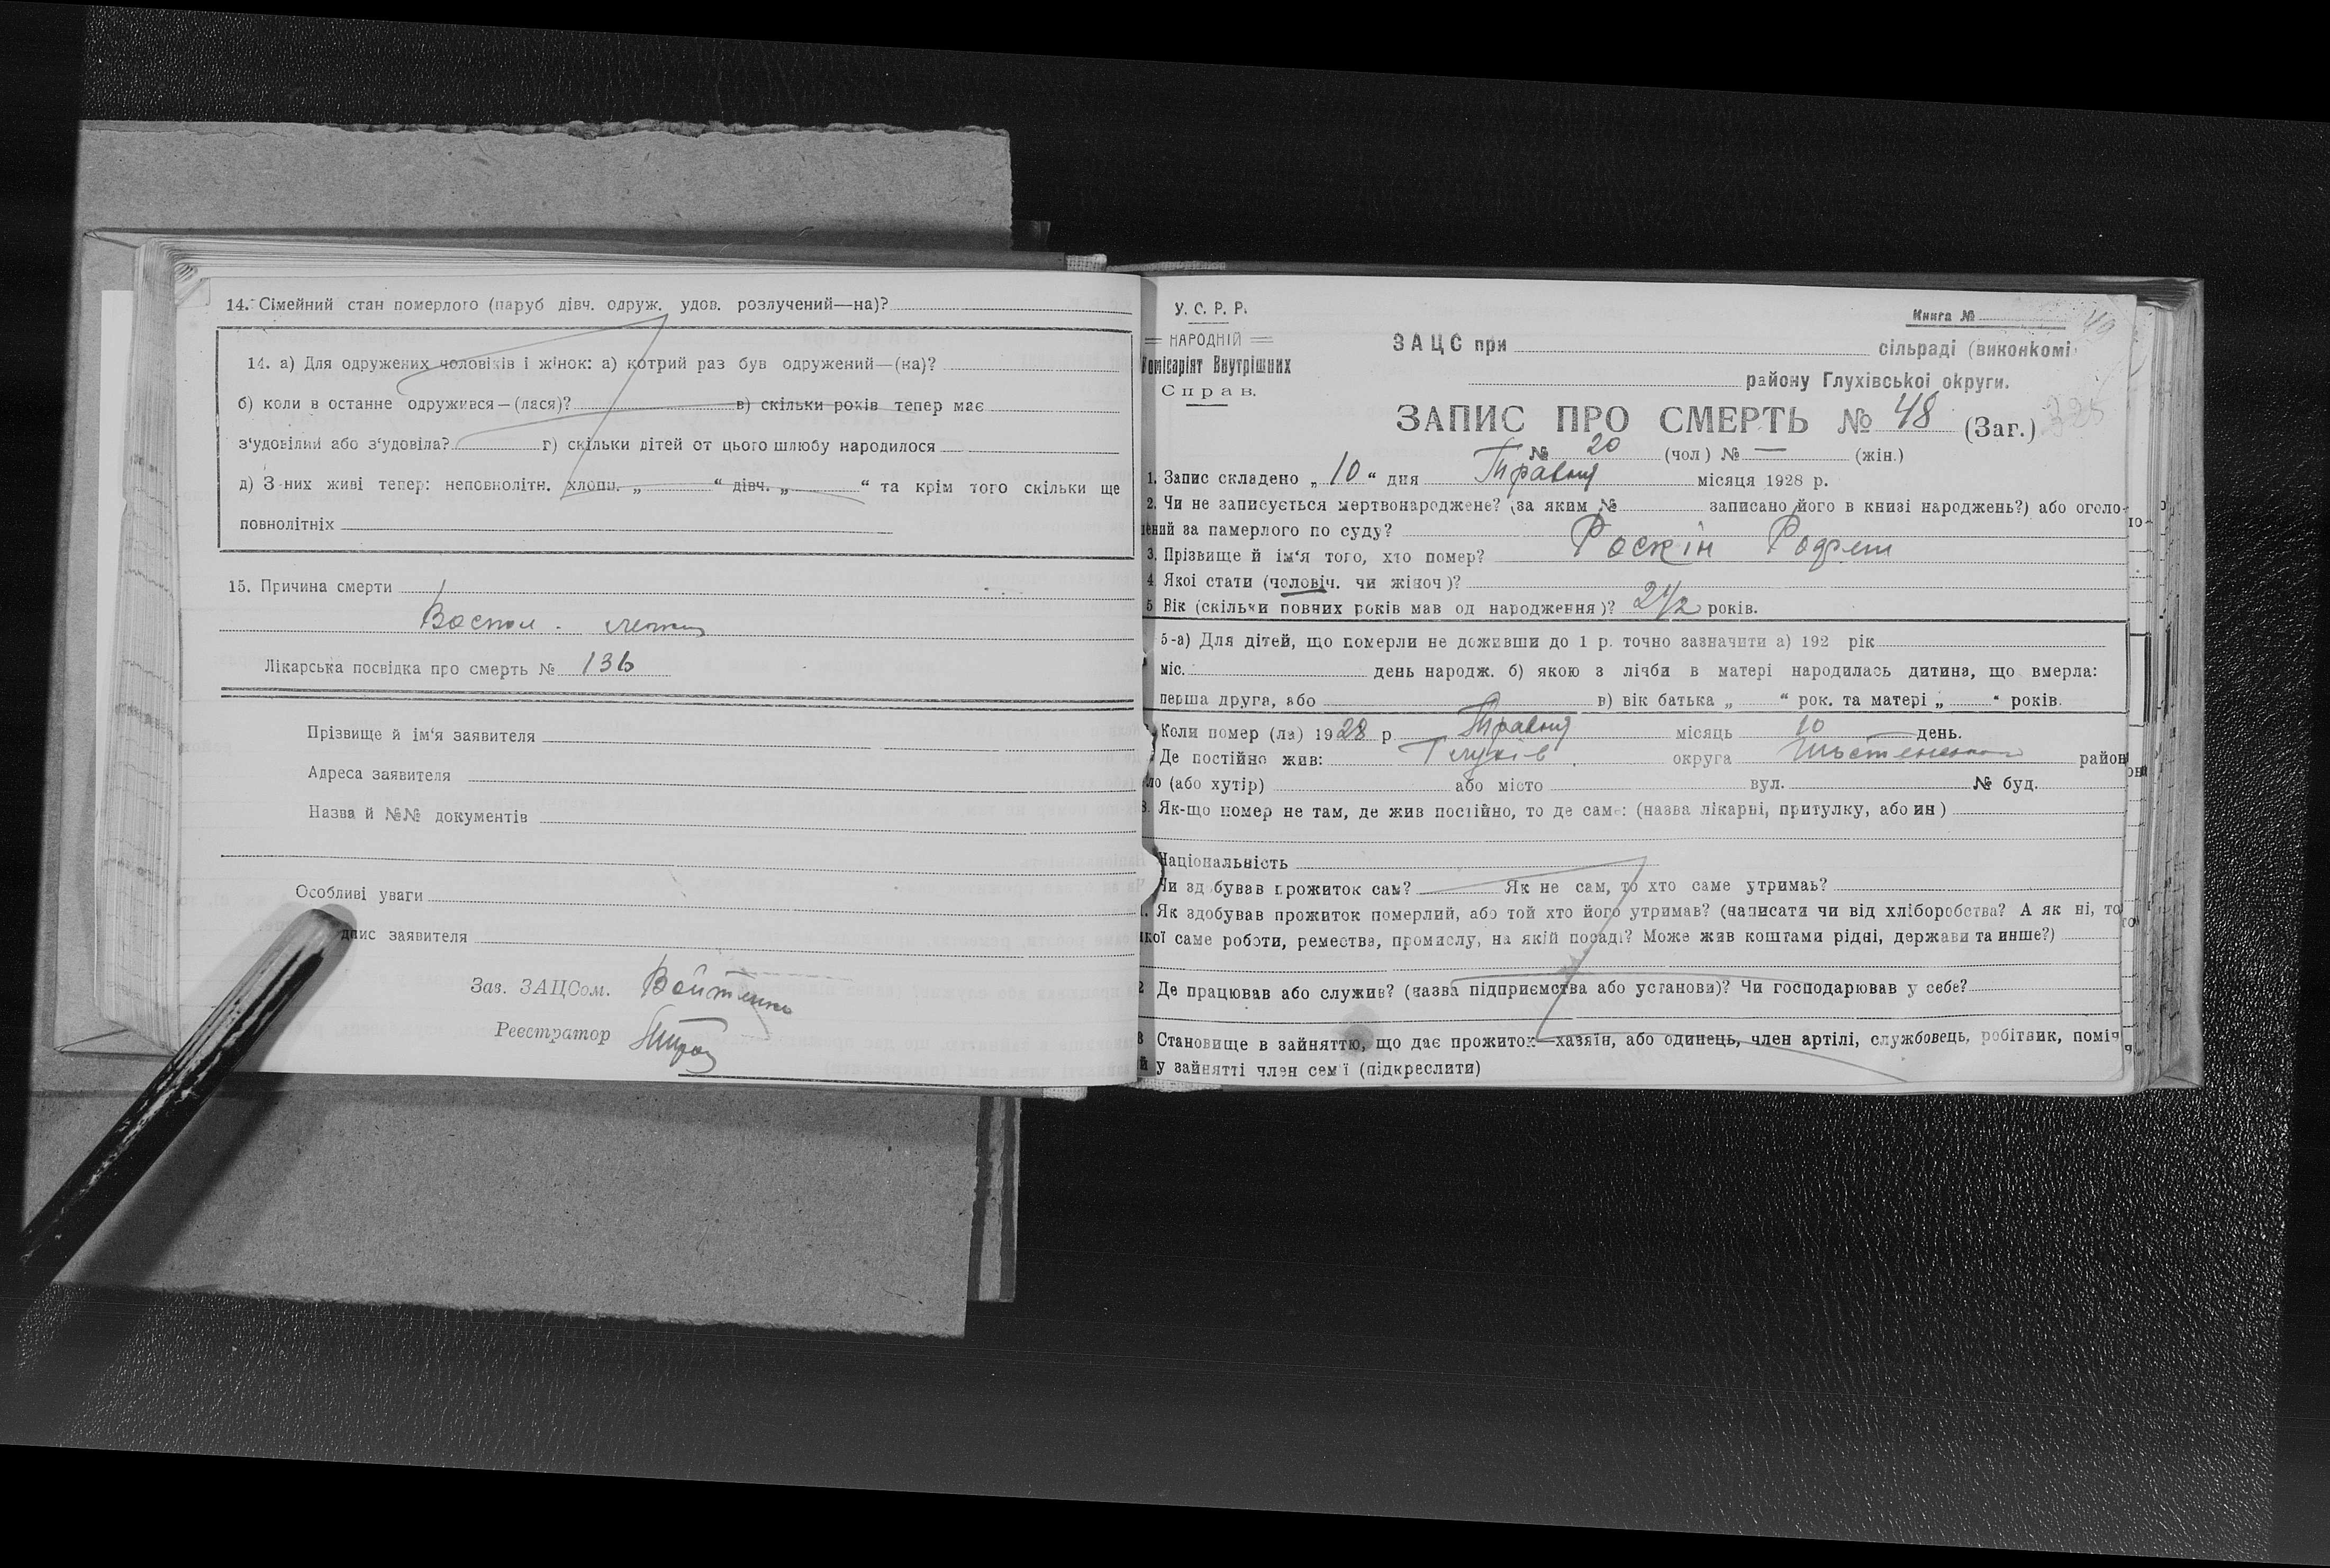 14. Сімейний стан померлого (паруб дівч. одруж. удов. розлучений—на)?
14. а) Для одружених чоловіків і жінок: а) котрий раз був одружений—(на)?
б) коли в останне одружився—(лася)? в) скільки років тепер має
з‘удовілий або з‘удовіла? г) скільки дітей от цього шлюбу народилося
д) З них живі тепер: неповнолітн. хлопц. „ “ дівч. „ “ та крім того скільки ще
повнолітніх
15. Причина смерти
Воспал.
Лікарська посвідка про смерть № 136
Прізвище й ім‘я заявителя
Адреса заявителя
Назва й №№ документів
Особливі уваги
дпис заявителя
Зав. ЗАЦСом. Войтенко
Реєстратор
У. С. Р. Р.
НАРОДНІЙ
Комісаріят Внутрішних
Справ.
Книга №
ЗАЦС при сільраді (виконкомі
району Глухівської округи.
ЗАПИС ПРО СМЕРТЬ № 48 (Заг.) 325
№ 20 (чол) № — (жін.)
1. Запис складено „ 10 “ дня Травня місяця 1928 р.
2. Чи не записується мертвонароджене? (за яким № записано його в книзі народжень?) або оголо-
ений за памерлого по суду?
3. Прізвище й ім‘я того, хто помер? Роскін
4 Якої стати (чоловіч. чи жіноч)?
5 Вік (скільки повних років мав од народження)? 2 1/2 років.
5-а) Для дітей, що померли не доживши до 1 р. точно зазначити а) 192 рік
міс. день народж. б) якою з лічби в матері народилась дитина, що вмерла:
перша друга, або в) вік батька „ “ рок. та матері „ “ років.
Коли помер (ла) 1928 р. Травня місяць 10 день.
Де постійно жив: Глухів округа район
ло (або хутір) або місто вул. № буд.
8. Як-що помер не там, де жив постійно, то де саме: (назва лікарні, притулку, або ин)
Національність
Чи здобував прожиток сам? Як не сам, то хто саме утримаь?
1. Як здобував прожиток померлий, або той хто його утримав? (написати чи від хліборобства? А як ні, то
якої саме роботи, ремества, промислу, на якій посаді? Може жив коштами рідні, держави та инше?)
2 Де працював або служив? (назва підприємства або установи)? Чи господарював у себе?
3 Становище в зайняттю, що дає прожиток—хазяїн, або одинець, член артілі, службовець, робітник, поміч
й у зайнятті член сем‘ї (підкреслити)